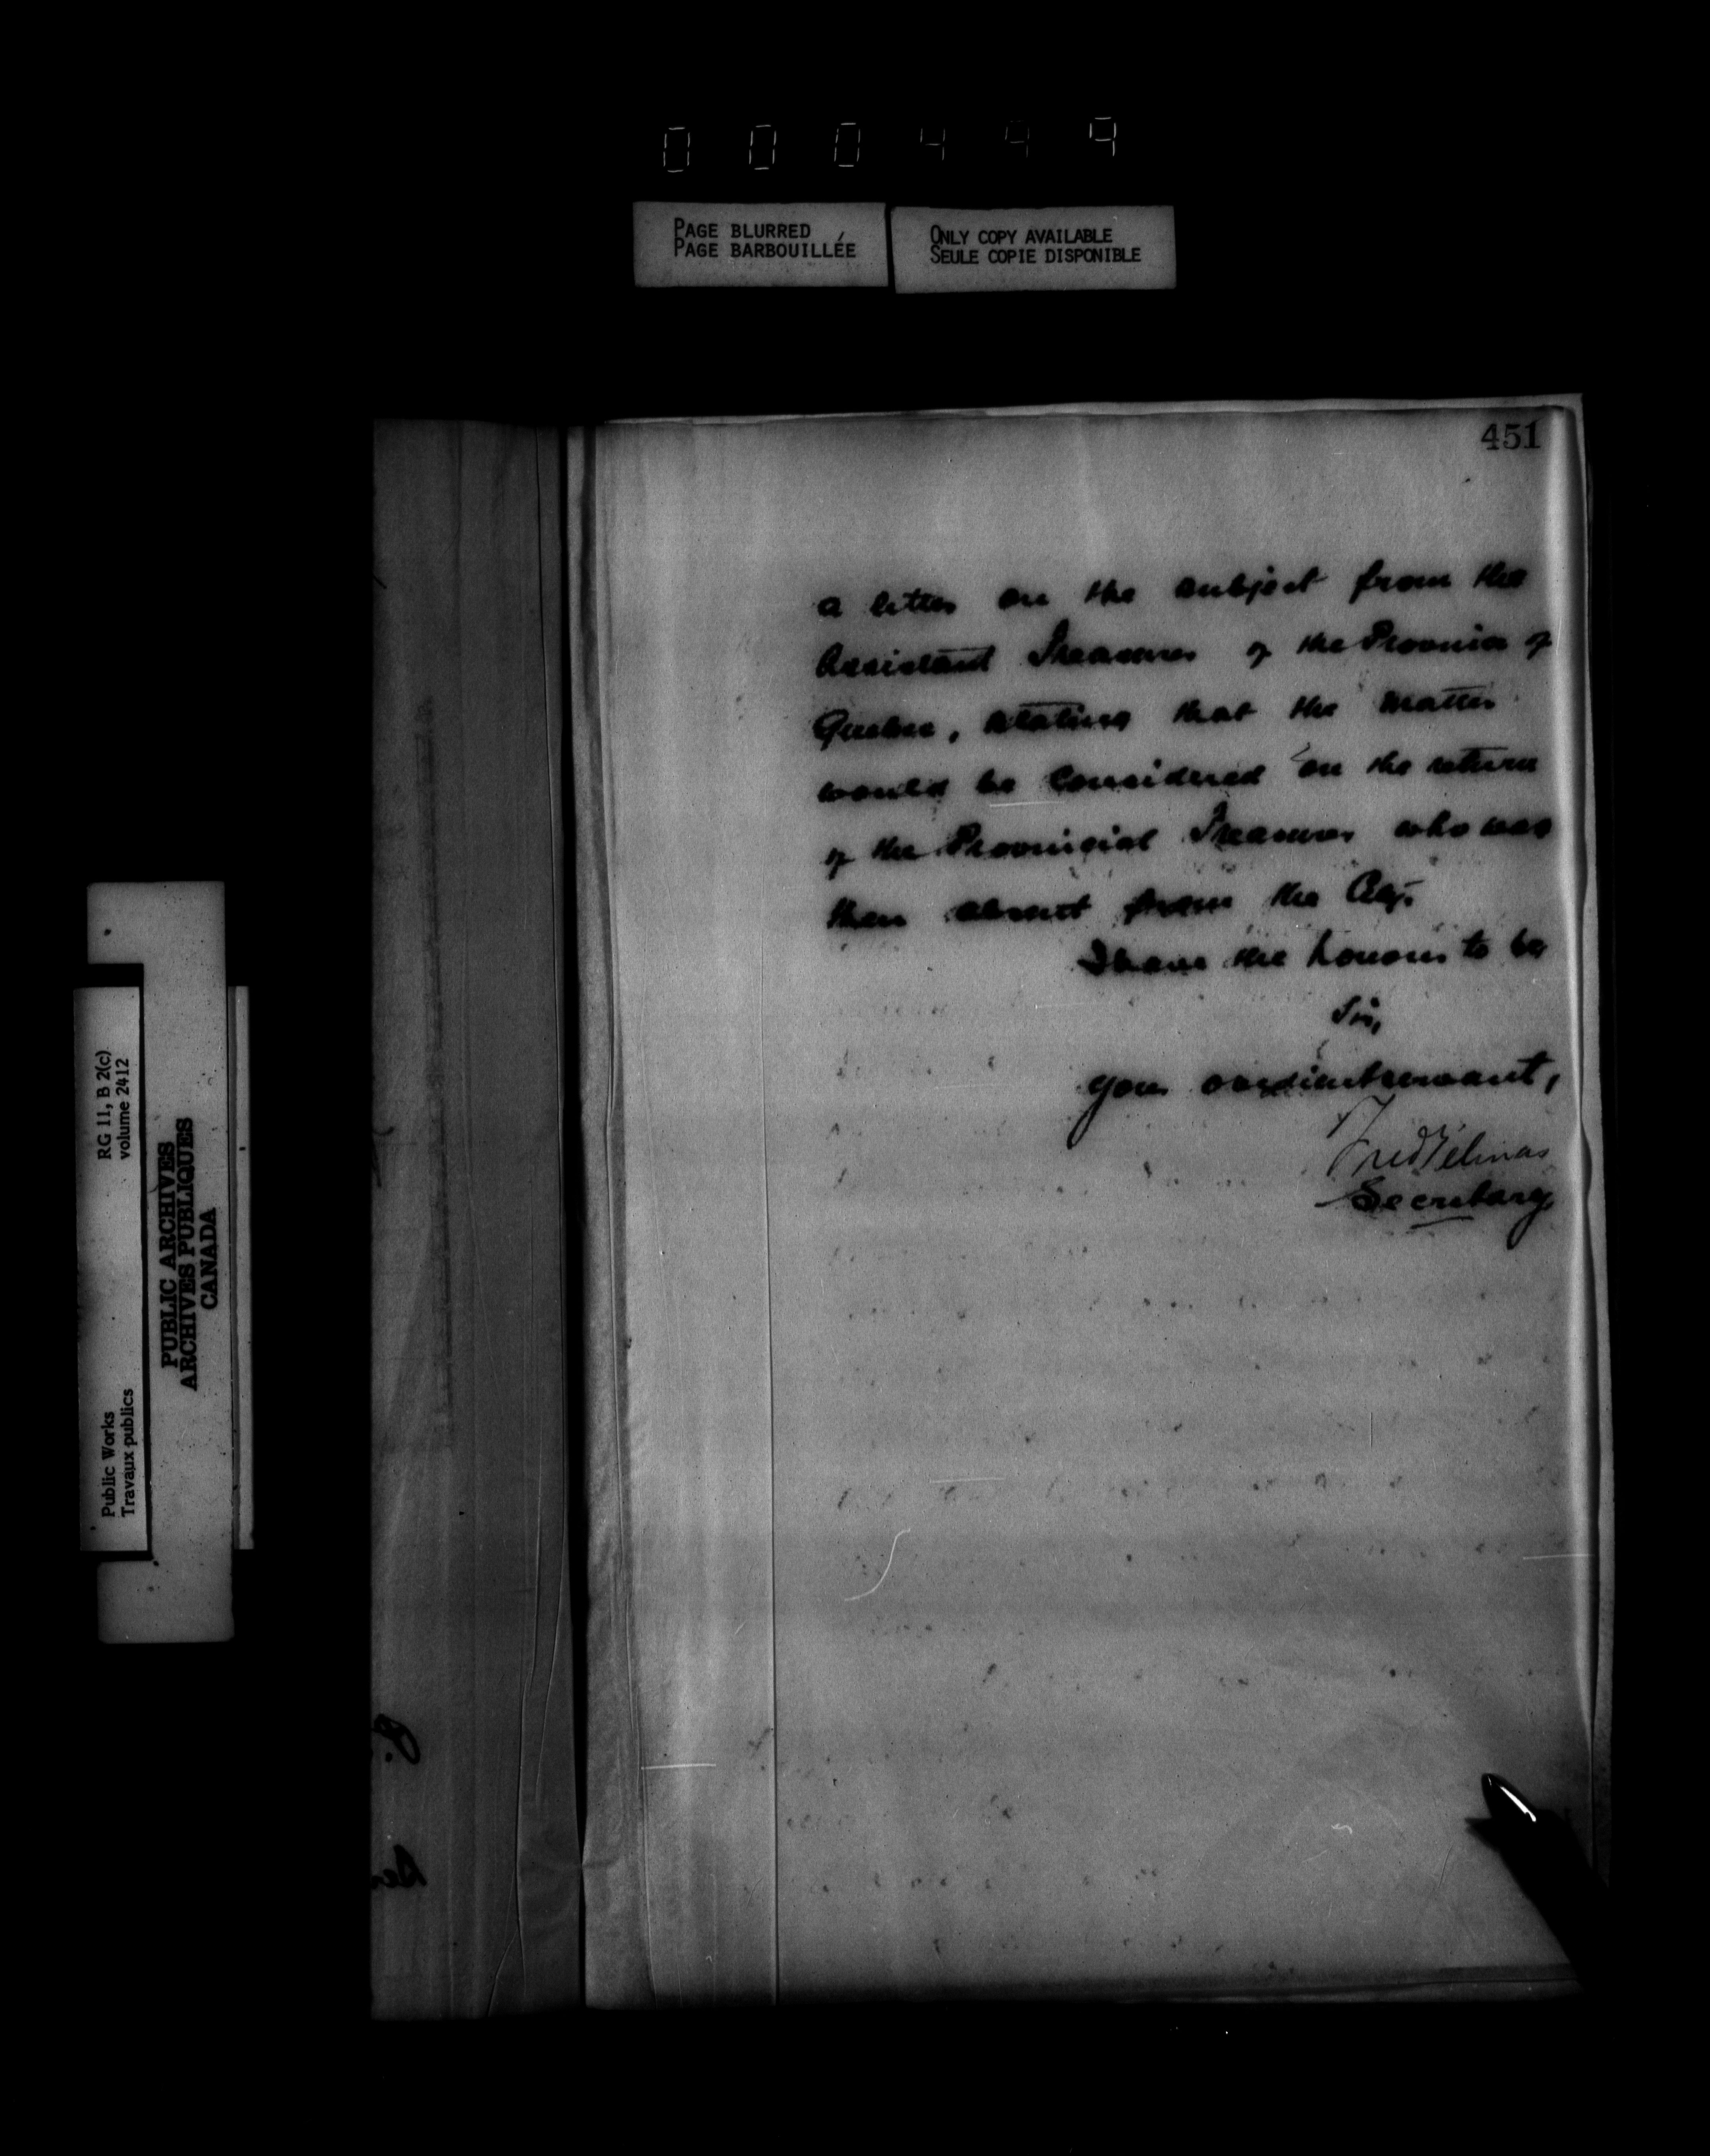 000499
PAGE BLURRED
PAGE BARBOUILLÉE
ONLY COPY AVAILABLE
SEULE COPIE DISPONIBLE
451
a letter on the subject from the
Assistant Treasurer of the Province of
Quebec, stating that the matter
would be considered on the return
of the Provincial Treasurer who was
then absent from the City.
I have the honour to be
Sir,
your obedient servant,
Fred Gélinas
Secretary
RG 11, B 2(c)
volume 2412
Public Works
Travaux publics
PUBLIC ARCHIVES
ARCHIVES PUBLIQUES
CANADA